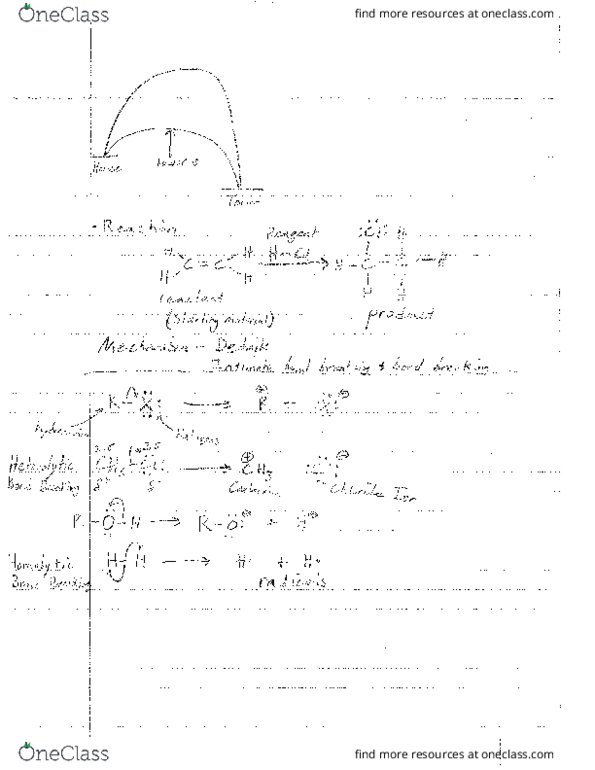 OneClass
find more resources at oneclass.com
House
lower
Town
- Reaction
Reagent
H-Cl
H
C = C
H
H
H
H
C
H
H
reactant
(Starting material)
product
Mechanism - Details
bond breaking & bond breaking
R - X
Halogens
Heterolytic
Bond Breaking
CH3
Chloride Ion
R - O - H
R - O
+ H
Homolytic
Bond Breaking
H - H
H·
+ H·
radicals
OneClass
find more resources at oneclass.com